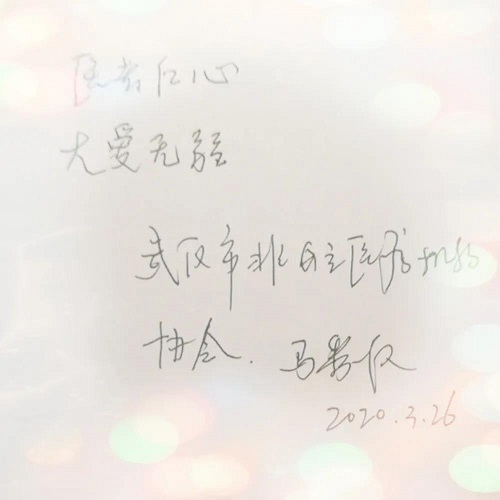 医者仁心
大爱无疆
武汉市非公立医疗机构
协会.
2020.3.26